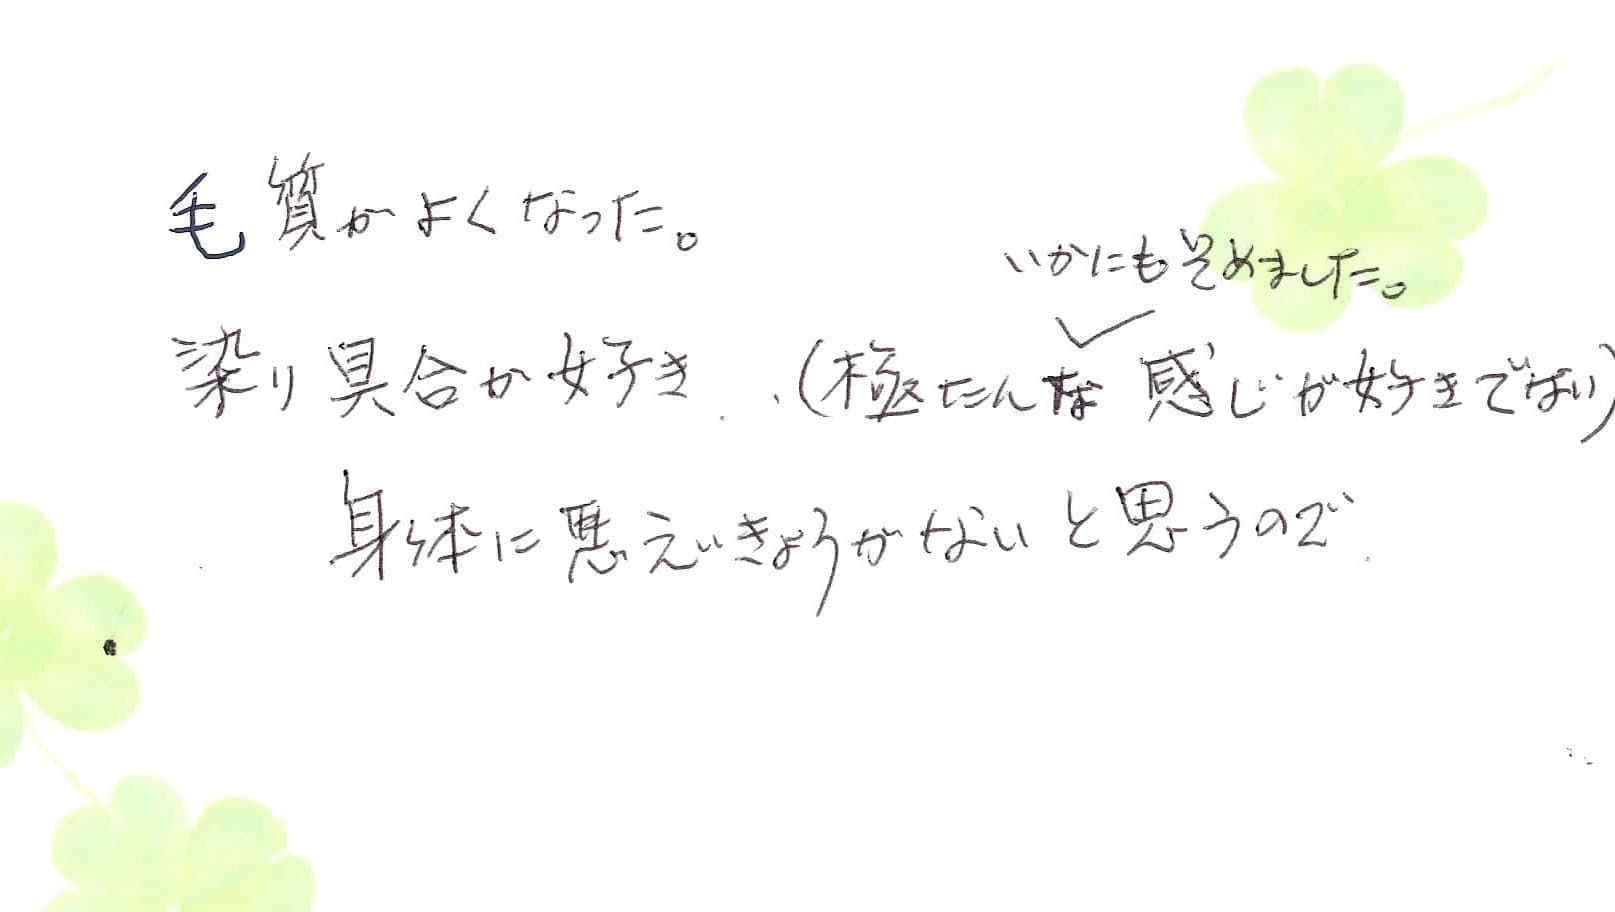 毛質がよくなった。
いかにもそめました。
染り具合が好き..(極たんな感じが好きでない)
身体に悪えいきょうがないと思うので.